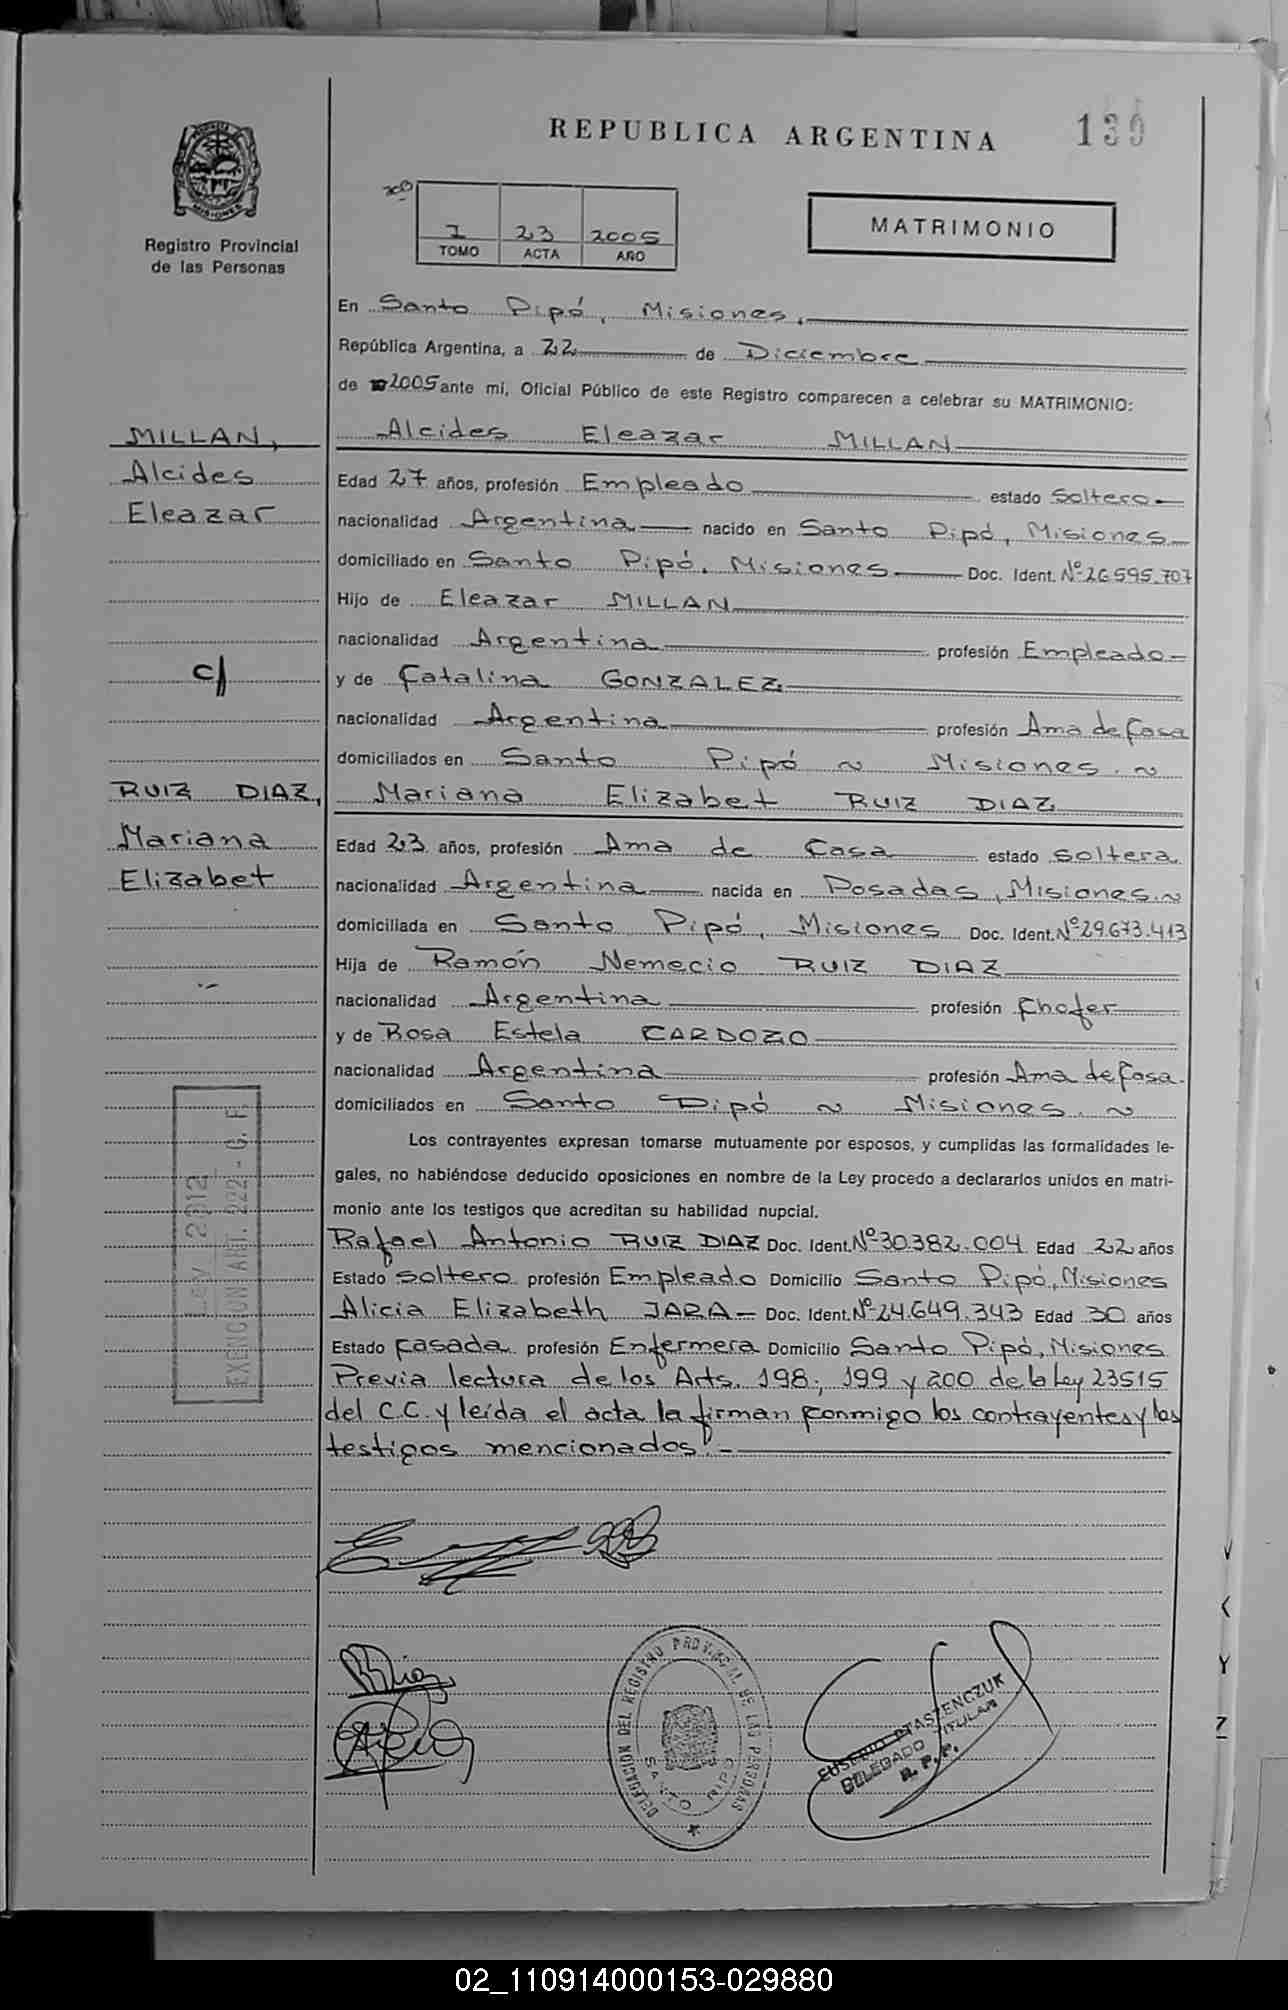 REPUBLICA ARGENTINA
130
PROVINCIA DE MISIONES
Registro Provincial
de las Personas
I 23 2005
TOMO ACTA AÑO
MATRIMONIO
En Santo Pipó, Misiones,
República Argentina, a 22 de Diciembre
de 2005 ante mi, Oficial Público de este Registro comparecen a celebrar su MATRIMONIO:
MILLAN,
Alcides
Eleazar
c/
RUIZ DIAZ,
Mariana
Elizabet
Alcides Eleazar MILLAN
Edad 27 años, profesión Empleado estado Soltero
nacionalidad Argentina nacido en Santo Pipó, Misiones
domiciliado en Santo Pipó, Misiones Doc. Ident. Nº 26.595.707
Hijo de Eleazar MILLAN
nacionalidad Argentina profesión Empleado
y de Catalina GONZALEZ
nacionalidad Argentina profesión Ama de Casa
domiciliados en Santo Pipó ~ Misiones. ~
Mariana Elizabet RUIZ DIAZ
Edad 23 años, profesión Ama de Casa estado soltera
nacionalidad Argentina nacida en Posadas, Misiones. ~
domiciliada en Santo Pipó, Misiones Doc. Ident. Nº 29.673.413
Hija de Ramón Nemecio RUIZ DIAZ
nacionalidad Argentina profesión Chofer
y de Rosa Estela CARDOZO
nacionalidad Argentina profesión Ama de Casa.
domiciliados en Santo Pipó ~ Misiones. ~
Los contrayentes expresan tomarse mutuamente por esposos, y cumplidas las formalidades le-
gales, no habiéndose deducido oposiciones en nombre de la Ley procedo a declararlos unidos en matri-
monio ante los testigos que acreditan su habilidad nupcial.
Rafael Antonio RUIZ DIAZ Doc. Ident. Nº 30.382.004 Edad 22 años
Estado soltero profesión Empleado Domicilio Santo Pipó, Misiones
Alicia Elizabeth JARA - Doc. Ident. Nº 24.649.343 Edad 30 años
Estado casada profesión Enfermera Domicilio Santo Pipó, Misiones
Previa lectura de los Arts. 198; 199 y 200 de la Ley 23515
del C.C. y leída el acta la firman conmigo los contrayentes y los
testigos mencionados.-
LEY 2012
EXENCION ART. 222 - G. F.
DELEGACION DEL REGISTRO PROVINCIAL DE LAS PERSONAS
SANTO PIPO
EUSEBIO PTASZENCZUK
DELEGADO TITULAR
R. P. P.
02_110914000153-029880